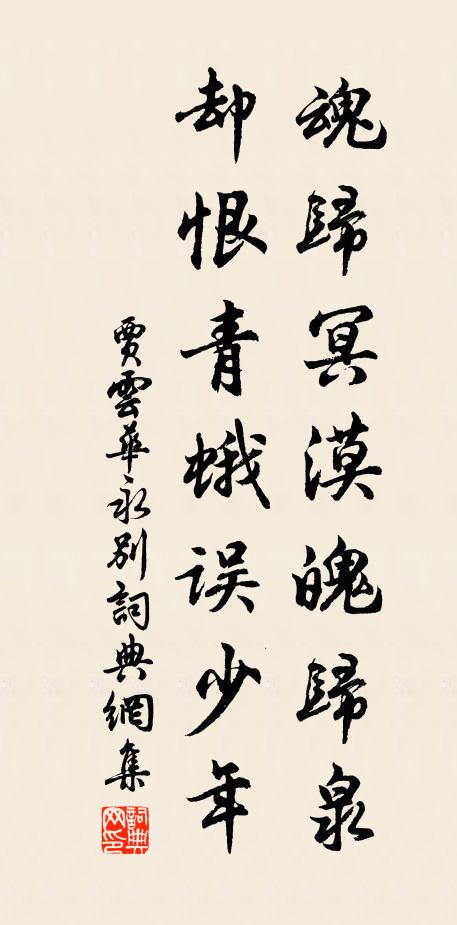 魂歸冥漠魄歸泉
却恨青蛾误少年
賈雲華永别詞典網集
詞典网印